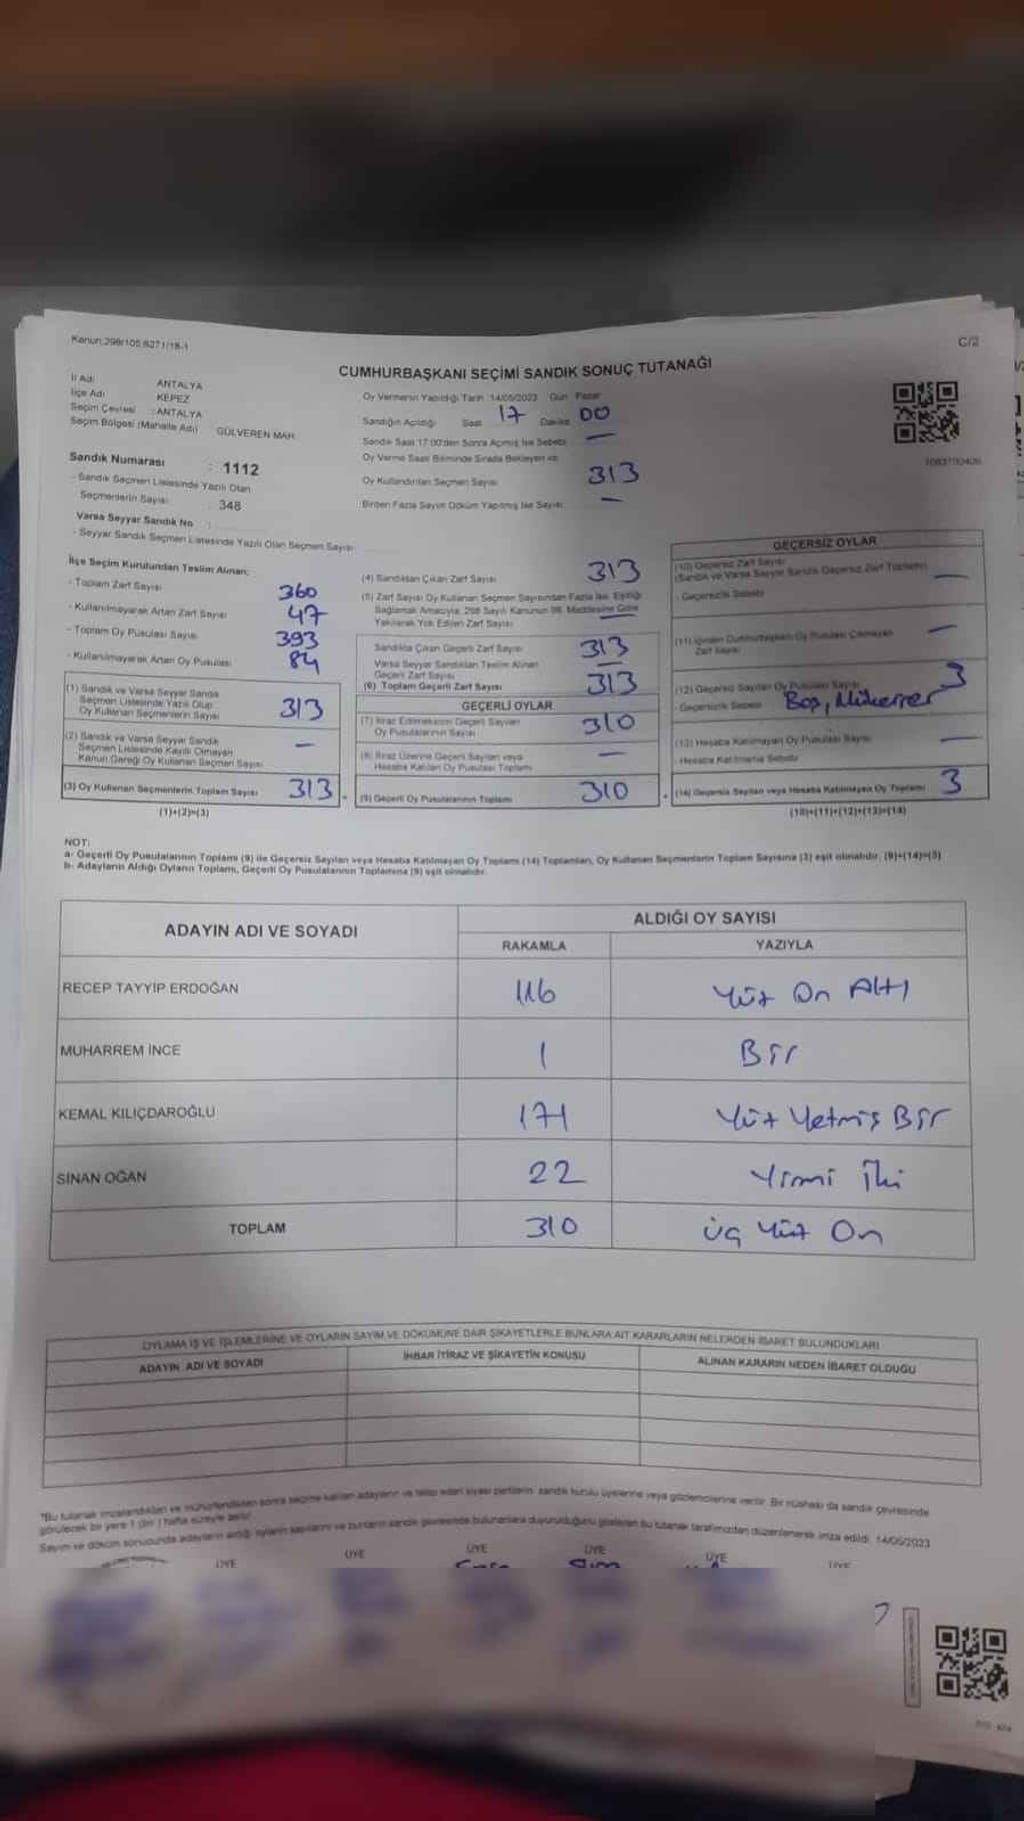 Kanun:298/105,6271/18-1
C/2
CUMHURBAŞKANI SEÇİMİ SANDIK SONUÇ TUTANAĞI
İl Adı ANTALYA
İlçe Adı KEPEZ
Seçim Çevresi :ANTALYA
Seçim Bölgesi (Mahalle Adı) GÜLVEREN MAH.
Sandık Numarası : 1112
- Sandık Seçmen Listesinde Yazılı Olan
Seçmenlerin Sayısı : 348
Varsa Seyyar Sandık No :
- Seyyar Sandık Seçmen Listesinde Yazılı Olan Seçmen Sayısı
Oy Vermenin Yapıldığı Tarih 14/05/2023 Gün Pazar
Sandığın Açıldığı Saat 17 Dakika 00
Sandık Saat 17:00'den Sonra Açılmış İse Sebebi —
Oy Verme Saati Bitiminde Sırada Bekleyen ve
Oy Kullandırılan Seçmen Sayısı 313
Birden Fazla Sayım Döküm Yapılmış İse Sayısı —
İlçe Seçim Kurulundan Teslim Alınan;
- Toplam Zarf Sayısı 360
- Kullanılmayarak Artan Zarf Sayısı 47
- Toplam Oy Pusulası Sayısı 393
- Kullanılmayarak Artan Oy Pusulası 84
(1) Sandık ve Varsa Seyyar Sandık
Seçmen Listesinde Yazılı Olup
Oy Kullanan Seçmenlerin Sayısı 313
(2) Sandık ve Varsa Seyyar Sandık
Seçmen Listesinde Kayıtlı Olmayan
Kanun Gereği Oy Kullanan Seçmen Sayısı —
(3) Oy Kullanan Seçmenlerin Toplam Sayısı 313
(1)+(2)=(3)
(4) Sandıktan Çıkan Zarf Sayısı 313
(5) Zarf Sayısı Oy Kullanan Seçmen Sayısından Fazla İse, Eşitliği
Sağlamak Amacıyla, 298 Sayılı Kanunun 98. Maddesine Göre
Yakılarak Yok Edilen Zarf Sayısı —
Sandıkta Çıkan Geçerli Zarf Sayısı 313
Varsa Seyyar Sandıktan Teslim Alınan
Geçerli Zarf Sayısı —
(6) Toplam Geçerli Zarf Sayısı 313
GEÇERLİ OYLAR
(7) İtiraz Edilmeksizin Geçerli Sayılan
Oy Pusulalarının Sayısı 310
(8) İtiraz Üzerine Geçerli Sayılan veya
Hesaba Katılan Oy Pusulası Toplamı —
(9) Geçerli Oy Pusulalarının Toplamı 310
GEÇERSİZ OYLAR
(10) Geçersiz Zarf Sayısı
(Sandık ve Varsa Seyyar Sandık Geçersiz Zarf Toplamı) —
- Geçersizlik Sebebi
(11) İçinden Cumhurbaşkanı Oy Pusulası Çıkmayan
Zarf Sayısı —
(12) Geçersiz Sayılan Oy Pusulası Sayısı 3
- Geçersizlik Sebebi Boş, Mükerrer
(13) Hesaba Katılmayan Oy Pusulası Sayısı —
- Hesaba Katılmama Sebebi
(14) Geçersiz Sayılan veya Hesaba Katılmayan Oy Toplamı 3
(10)+(11)+(12)+(13)=(14)
NOT:
a- Geçerli Oy Pusulalarının Toplamı (9) ile Geçersiz Sayılan veya Hesaba Katılmayan Oy Toplamı (14) Toplamları, Oy Kullanan Seçmenlerin Toplam Sayısına (3) eşit olmalıdır. (9)+(14)=(3)
b- Adayların Aldığı Oyların Toplamı, Geçerli Oy Pusulalarının Toplamına (9) eşit olmalıdır.
ADAYIN ADI VE SOYADI
ALDIĞI OY SAYISI
RAKAMLA YAZIYLA
RECEP TAYYİP ERDOĞAN 116 Yüz On Altı
MUHARREM İNCE 1 Bir
KEMAL KILIÇDAROĞLU 171 Yüz Yetmiş Bir
SİNAN OĞAN 22 Yirmi İki
TOPLAM 310 Üç Yüz On
OYLAMA İŞ VE İŞLEMLERİNE VE OYLARIN SAYIM VE DÖKÜMÜNE DAİR ŞİKAYETLERLE BUNLARA AİT KARARLARIN NELERDEN İBARET BULUNDUKLARI
ADAYIN ADI VE SOYADI
İHBAR İTİRAZ VE ŞİKAYETİN KONUSU
ALINAN KARARIN NEDEN İBARET OLDUĞU
*Bu tutanak imzalandıktan ve mühürlendikten sonra seçime katılan adayların ve talep eden siyasi partilerin sandık kurulu üyelerine veya gözlemcilerine verilir. Bir nüshası da sandık çevresinde
görülecek bir yere 1 (bir) hafta süreyle asılır.
Sayım ve döküm sonucunda adayların aldığı oyların sayılarını ve bunların sandık çevresinde bulunanlara duyurulduğunu gösteren bu tutanak tarafımızdan düzenlenerek imza edildi. 14/05/2023
ÜYE ÜYE ÜYE ÜYE ÜYE ÜYE